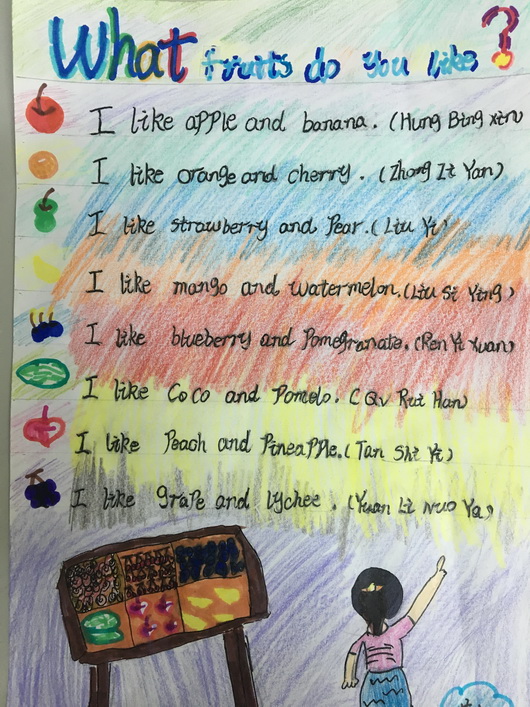 What fruits do you like?
I like apple and banana. (Hung Bing xinru)
I like orange and cherry. (Zhong Zi Yan)
I like strawberry and Pear. (Liu Yi)
I like mango and watermelon. (Liu Si Ying)
I like blueberry and Pomegranate. (Ren Yi Xuan)
I like Coco and Pomelo. (Qu Rui Han)
I like Peach and PineaPPle. (Tan Shi Yi)
I like grape and lychee. (Yuan Li Nuo Ya)